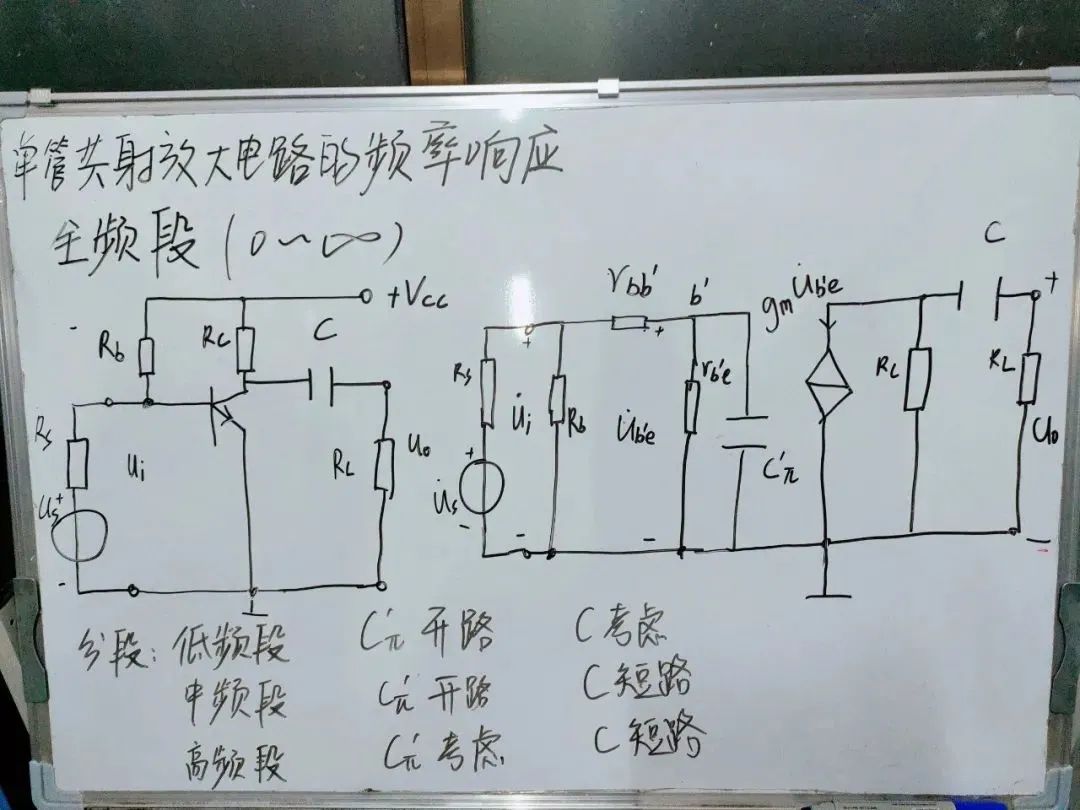 单管共射放大电路的频率响应
全频段(0~∞)
+Vcc
Rb
Rc
C
Rs
Ui
Us
+
-
-
RL
Uo
rbb'
b'
gmU̇b'e
C
+
Rs
+
U̇i
Rb
+
U̇b'e
rb'e
C'π
Rc
RL
Uo
U̇s
+
-
-
-
-
分段: 低频段 C'π 开路 C 考虑
中频段 C'π 开路 C 短路
高频段 C'π 考虑 C 短路